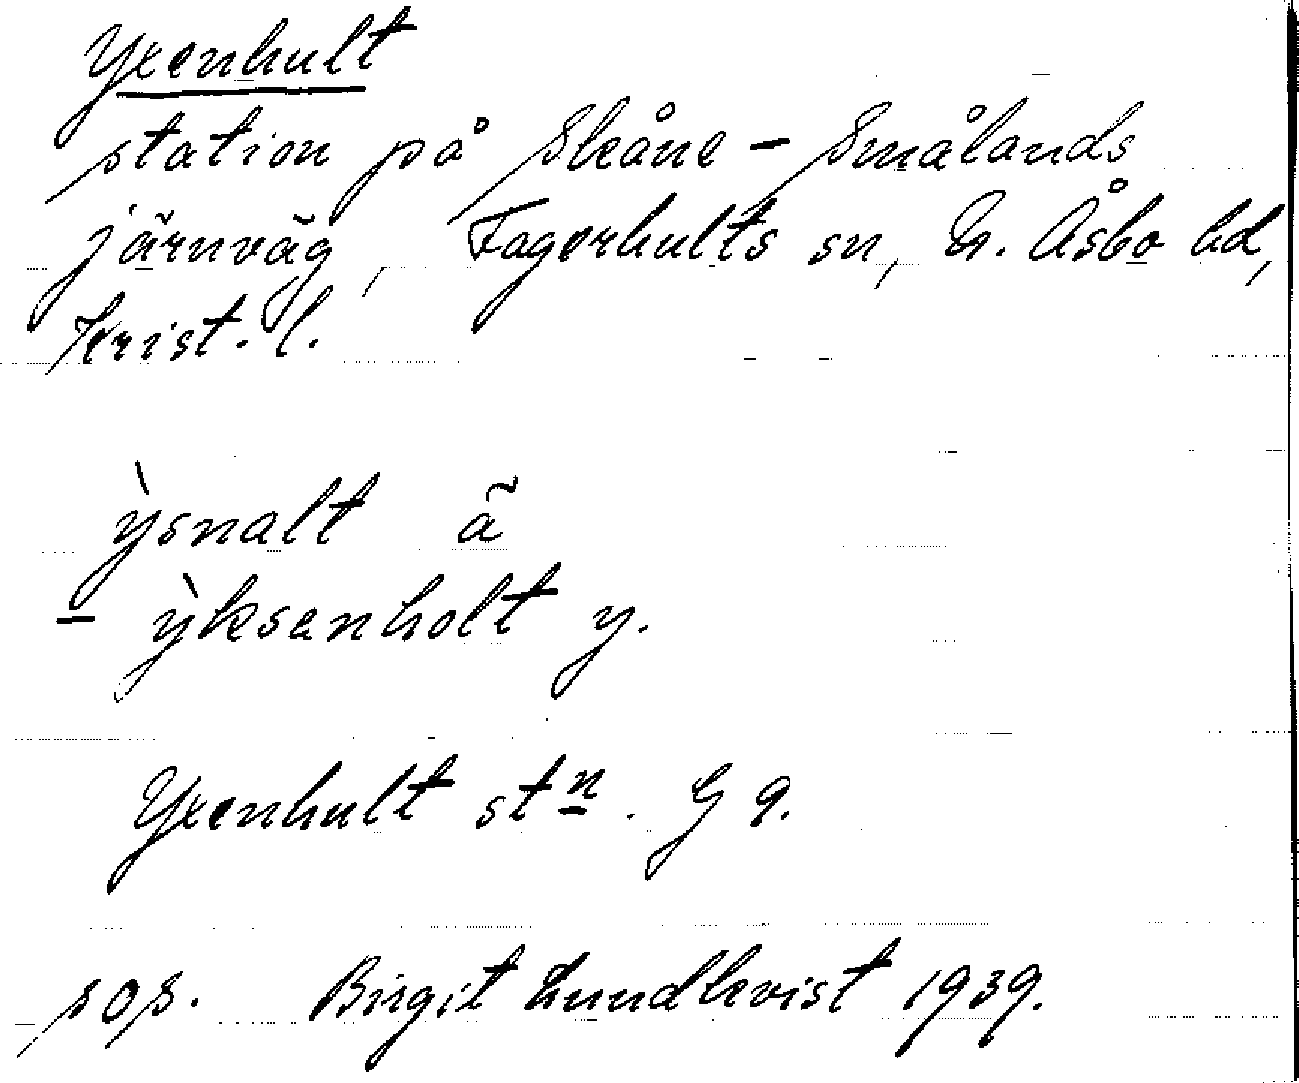 Yxenhult
station på Skåne - Smålands
järnväg, Fagerhults sn, N. Åsbo hd,
Krist. l.
ỳsnalt ä
- ỳksenholt y.
Yxenhult stn. G 9.
sos. Birgit Lundkvist 1939.